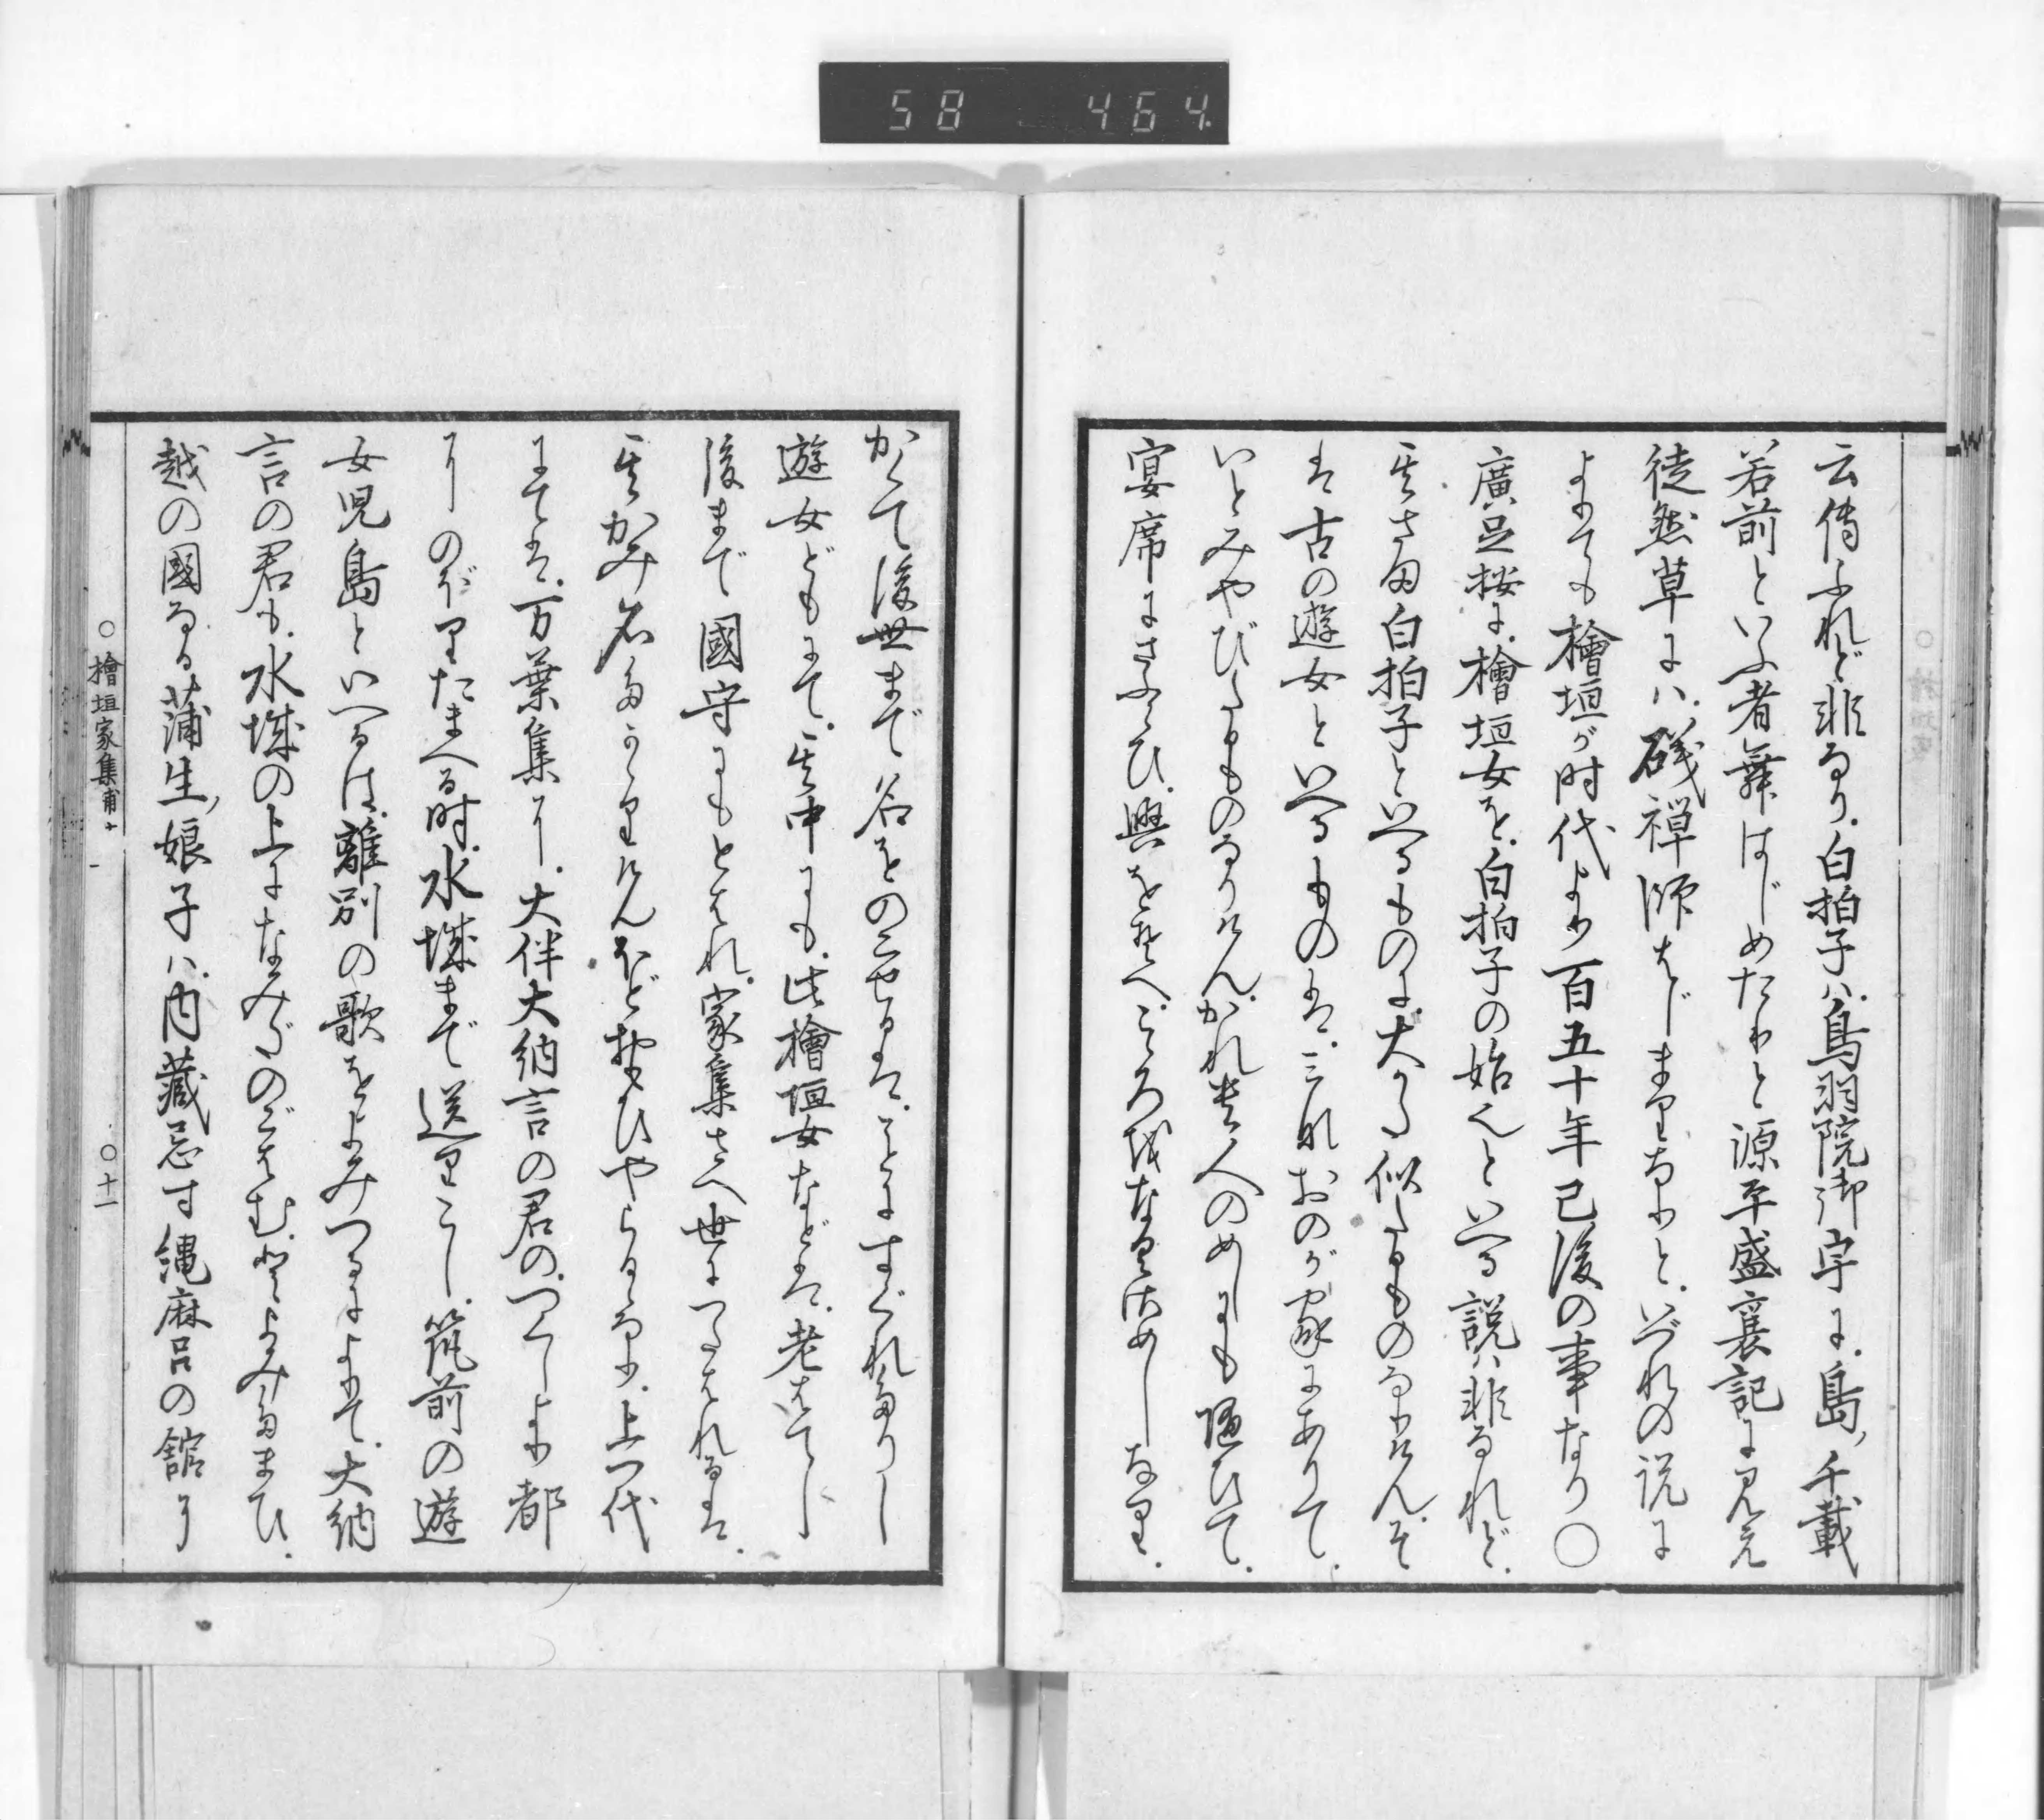 58 464
云傳ふれど非なり。白拍子ハ鳥羽院御宇に、島ノ千載
若前といふ者舞はじめたりと源平盛衰記に見え
徒然草にハ、磯禅師はじまりなりと、いづれの説に
よりても檜垣が时代より百五十年已後の事なり○
廣足按に、檜垣女を、白拍子の始めといへる説ハ非なれど、
其さま白拍子といへるものに、大かた似たるものなりけん、そ
は古の遊女といへるものは、三れおのが家にありて、
いとみやびたるものなりけん、かれ貴人のめしにも随ひて、
宴席にさふらひ、興をそへ、こころばせなるはめしなり、
かくて後世まで名をのこせるは、ことにすぐれたりし
遊女どもにて、其中にも、此檜垣女などは、老はてし
後まで國守にもとはれ、家集さへ世につたはれるは、
其かみ名たかかりけんほど押おもひやらるるなり、上つ代
にては、万葉集に、大伴大納言の君の、つくしより都
にのぼりたまへる时、水城まで送りこし、筑前の遊
女児島といへるは、離別の歌をよみつるによりて、大納
言の君も、水城の上になみだのごはむ、とよみたまひ、
越の國なる蒲生ノ娘子ハ、内藏忌寸縄麻呂の舘に
○檜垣家集補十一 ○十一